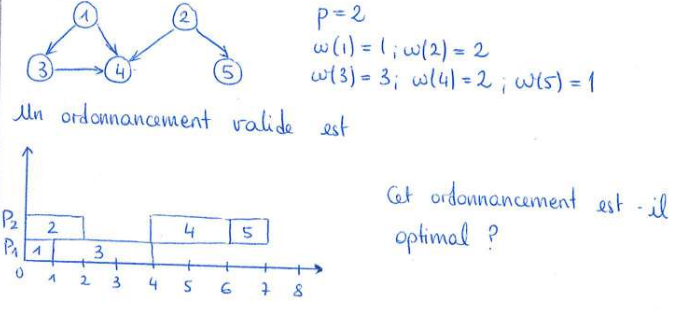 1 2
3 4 5
p = 2
w(1) = 1 ; w(2) = 2
w(3) = 3 ; w(4) = 2 ; w(5) = 1
Un ordonnancement valide est
P2 2 4 5
P1 1 3
0 1 2 3 4 5 6 7 8
Cet ordonnancement est-il
optimal ?